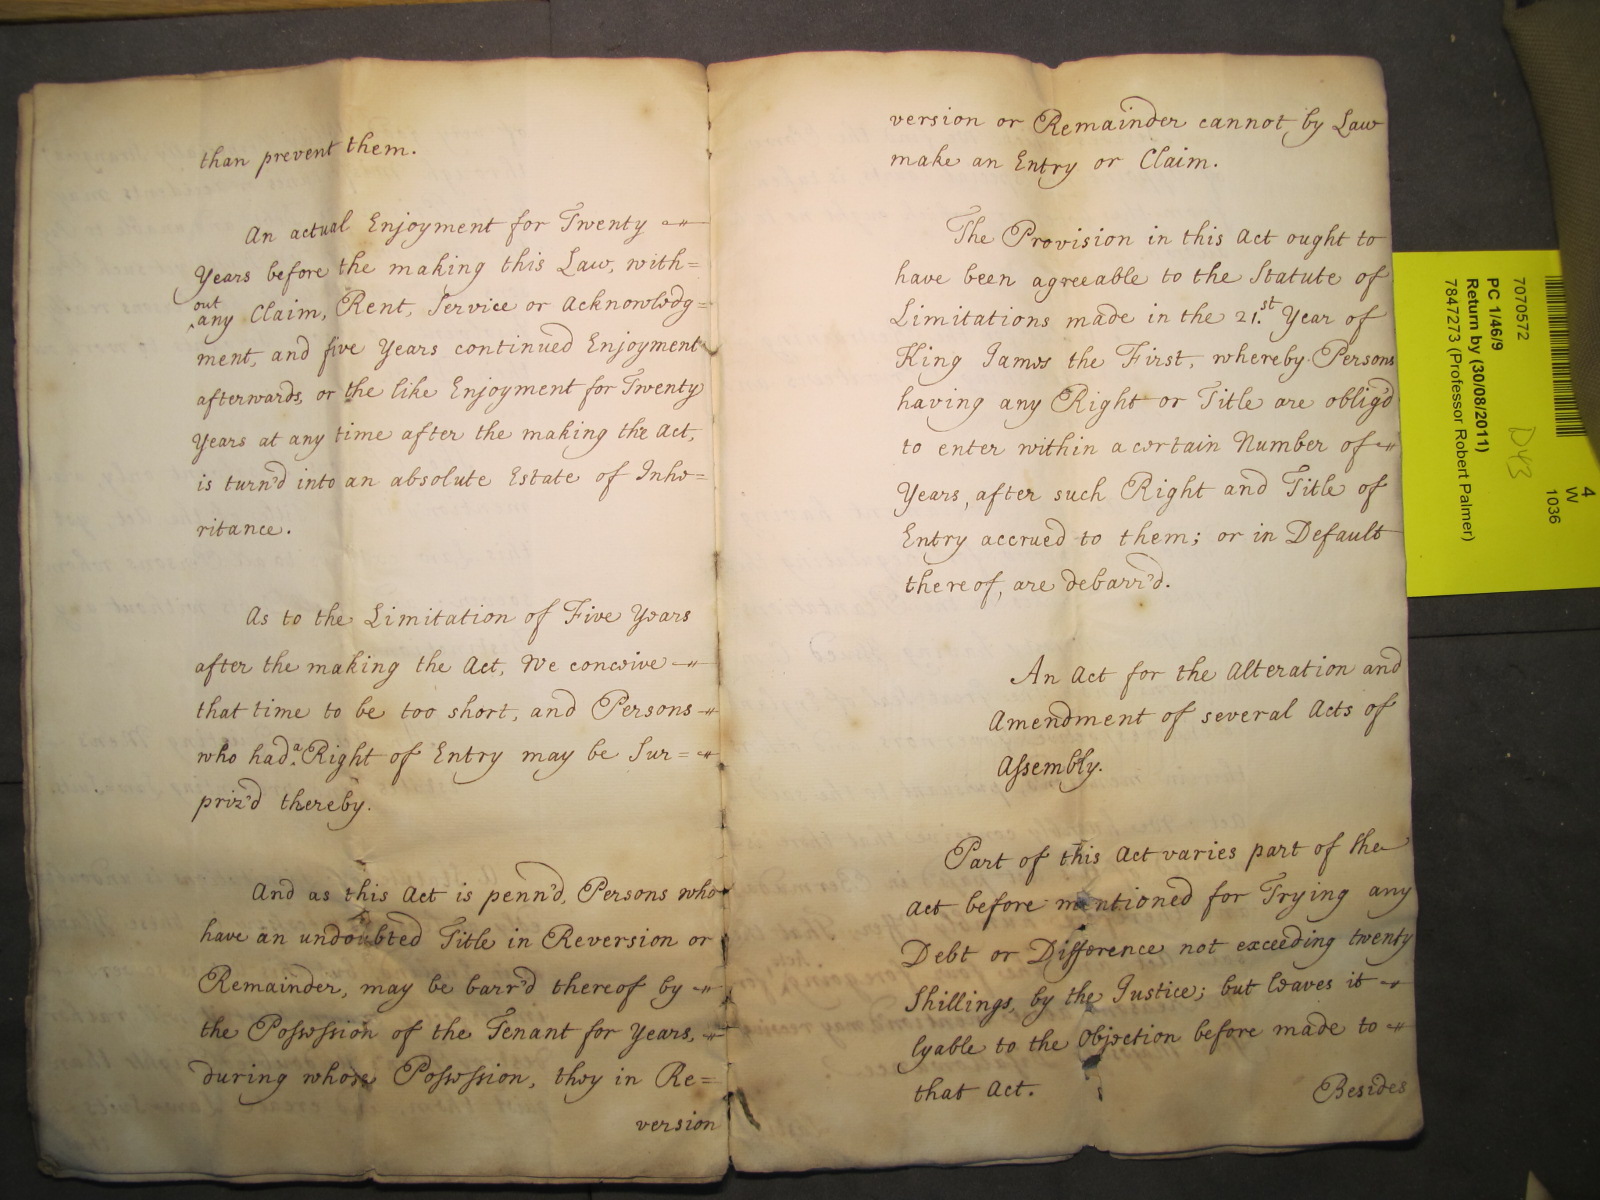 than prevent them.
An actual Enjoyment for Twenty
Years before the making this Law, with=
out
any Claim, Rent, Service or Acknowledg=
ment, and five Years continued Enjoyment
afterwards, or the like Enjoyment for Twenty
Years at any time after the making the Act,
is turn'd into an absolute Estate of Inhe=
ritance.
As to the Limitation of Five Years
after the making the Act, We conceive
that time to be too short, and Persons
who had a Right of Entry may be Sur=
priz'd thereby.
And as this Act is penn'd, Persons who
have an undoubted Title in Reversion or
Remainder, may be barr'd thereof by
the Possession of the Tenant for Years,
during whose Possession, they in Re=
version
version or Remainder cannot by Law
make an Entry or Claim.
The Provision in this Act ought to
have been agreeable to the Statute of
Limitations made in the 21.st Year of
King James the First, whereby Persons
having any Right or Title are oblig'd
to enter within a certain Number of
Years, after such Right and Title of
Entry accrued to them; or in Default
thereof, are debarr'd.
An Act for the Alteration and
Amendment of several Acts of
Assembly.
Part of this Act varies part of the
Act before mentioned for Trying any
Debt or Difference not exceeding twenty
Shillings, by the Justice; but leaves it
lyable to the Objection before made to
that Act.
Besides
7070572
PC 1/46/9
Return by (30/08/2011)
7847273 (Professor Robert Palmer)
D43
4
W
1036